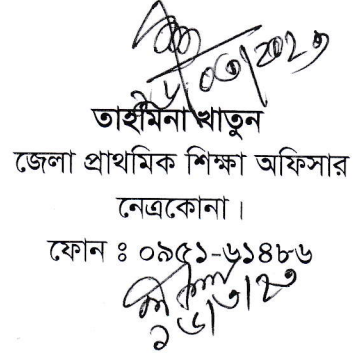 তাহমিনা খাতুন
জেলা প্রাথমিক শিক্ষা অফিসার
নেত্রকোনা।
ফোন ঃ ০৯৫১-৬১৪৮৬